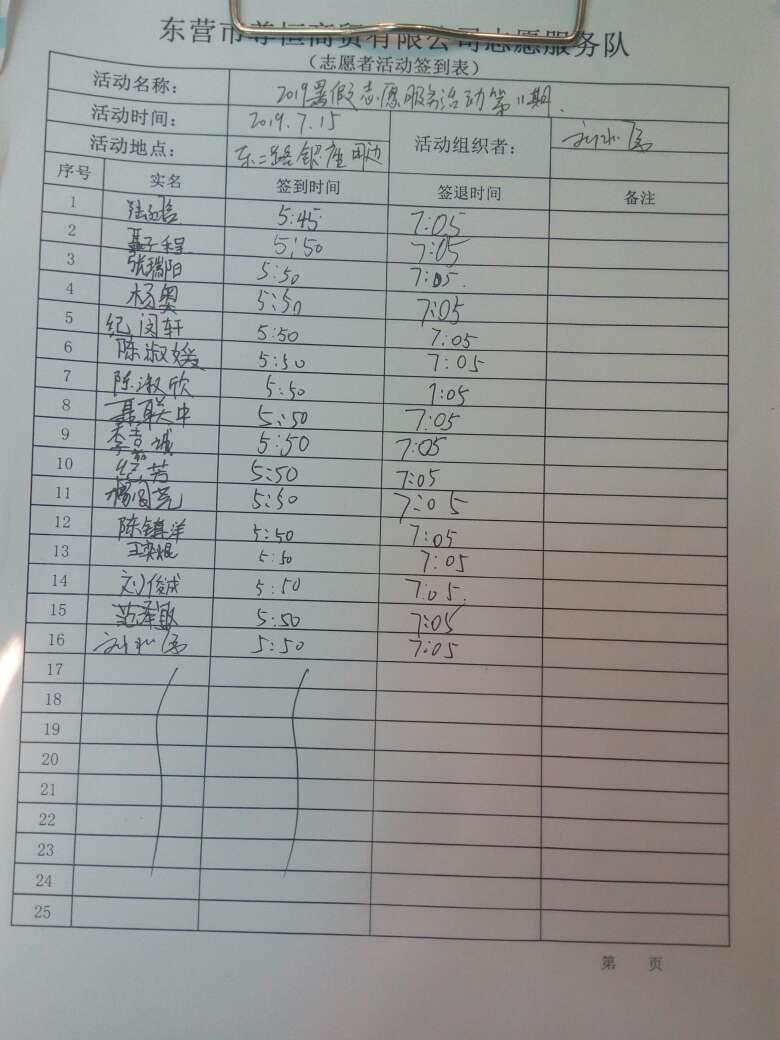 东营市尊恒商贸有限公司志愿服务队
（志愿者活动签到表）
活动名称： 2019暑假志愿服务活动第11期.
活动时间： 2019.7.15
活动地点： 东二路银座周边 活动组织者：
序号 实名 签到时间 签退时间 备注
1 5:45 7:05
2 聂子程 5:50 7:05
3 张瑞阳 5:50 7:05.
4 杨奥 5:50 7:05
5 纪闵轩 5:50 7:05
6 陈淑媛 5:50 7:05
7 陈淑欣 5:50 7:05
8 聂联中 5:50 7:05
9 5:50 7:05
10 5:50 7:05
11 5:50 7:05
12 陈镇洋 5:50 7:05
13 王奕焜 5:50 7:05
14 刘俊成 5:50 7:05.
15 5:50 7:05
16 5:50 7:05
17
18
19
20
21
22
23
24
25
第 页